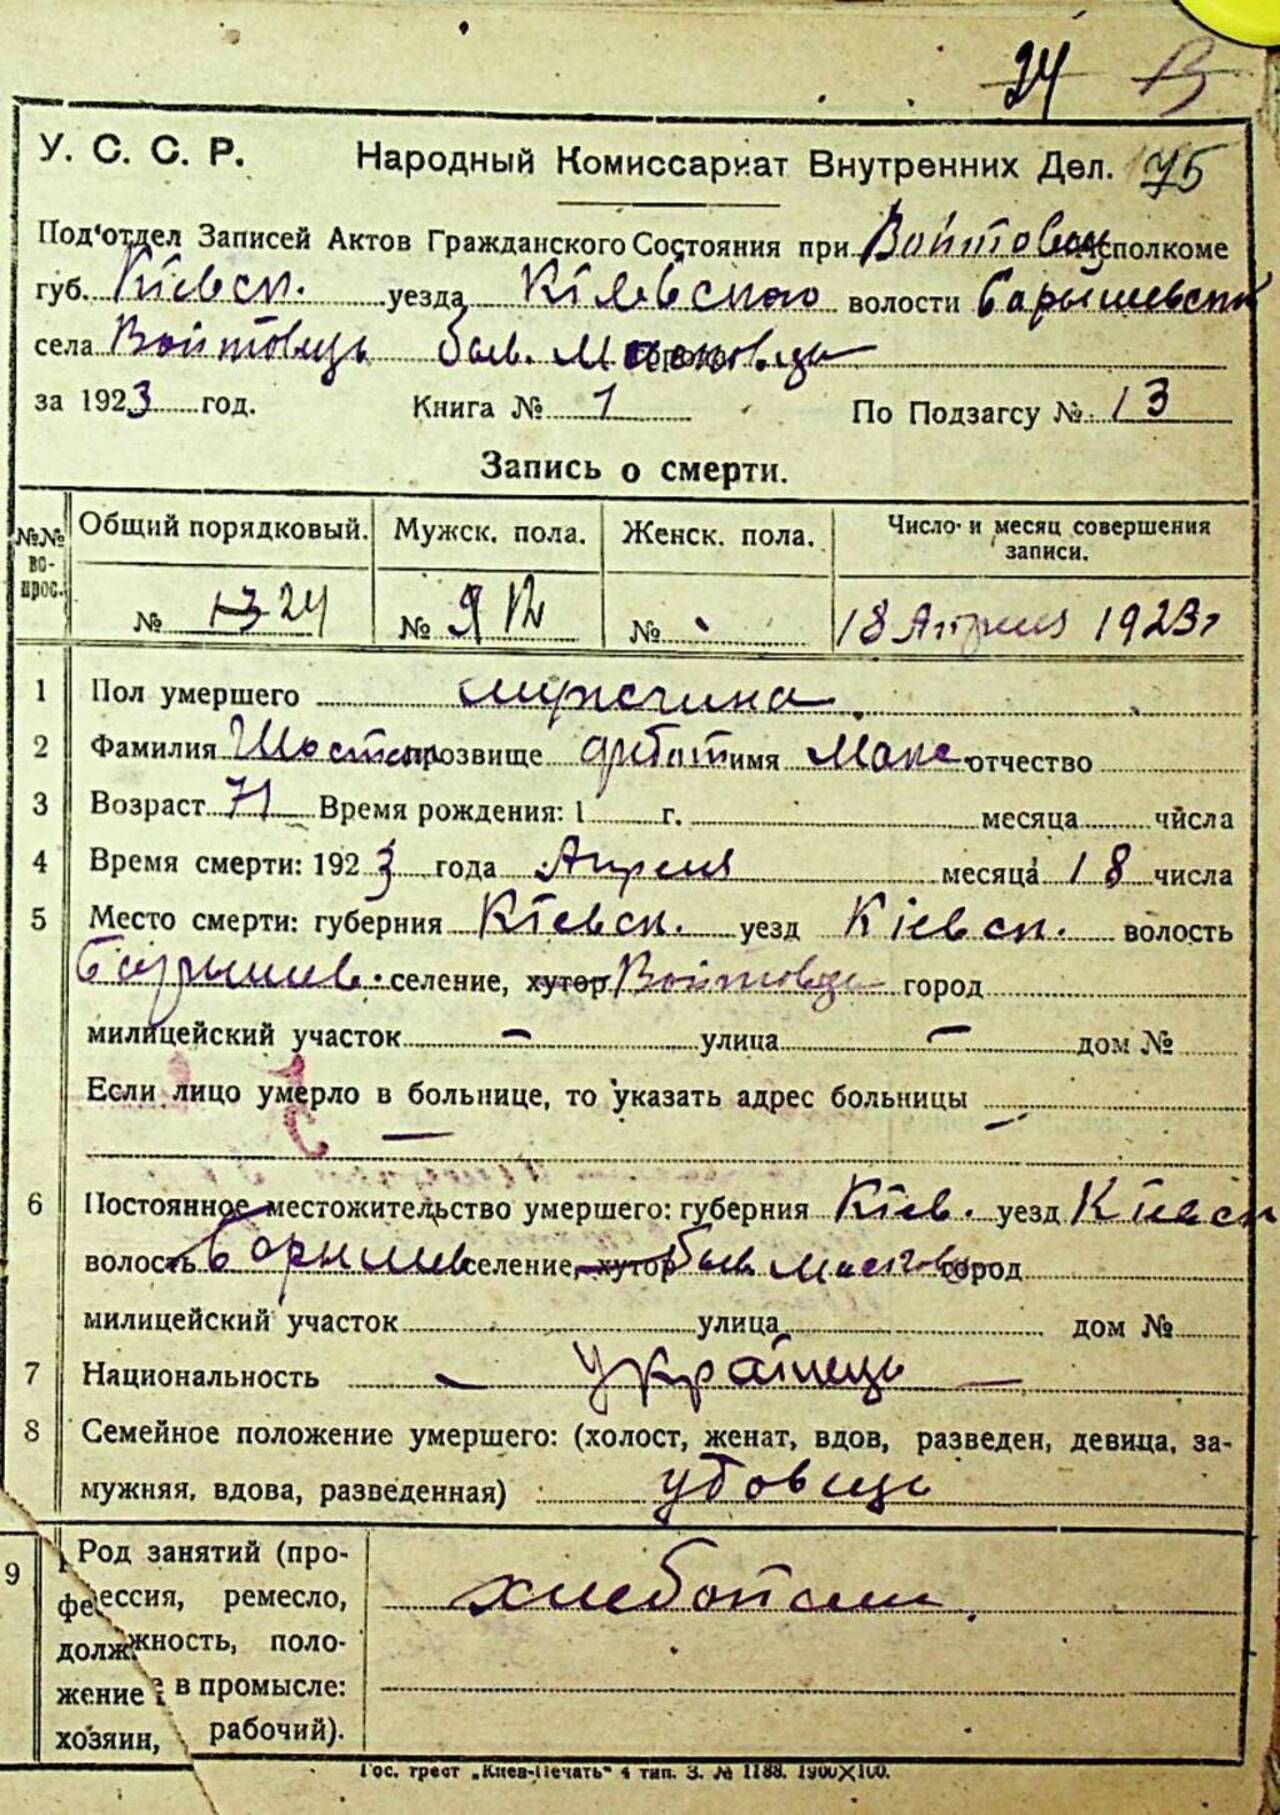 24 13
У. С. С. Р. Народный Комиссариат Внутренних Дел. 75
Под'отдел Записей Актов Гражданского Состояния при Войтовец исполкоме
губ. Кіевск. уезда Кіевского волости Барышевской
села Войтовець быв.
за 1923 год. Книга № 1 По Подзагсу № 13
Запись о смерти.
№№ вопрос. Общий порядковый. Мужск. пола. Женск. пола. Число и месяц совершения записи.
№ 13 24 № 9 12 № 18 Апреля 1923 г
1 Пол умершего мужчина
2 Фамилия прозвище имя отчество
3 Возраст 71 Время рождения: 1 г. месяца числа
4 Время смерти: 1923 года Апреля месяца 18 числа
5 Место смерти: губерния Кіевск. уезд Кіевск. волость
Барышев. селение, хутор Войтовцы город
милицейский участок — улица — дом №
Если лицо умерло в больнице, то указать адрес больницы —
—
6 Постоянное местожительство умершего: губерния Кіев. уезд Кіевск
волость Барышев селение, хутор бывш. город
милицейский участок улица дом №
7 Национальность — Українець —
8 Семейное положение умершего: (холост, женат, вдов, разведен, девица, за-
мужняя, вдова, разведенная) удовець
9 Род занятий (про-
фессия, ремесло, хлебопашец
должность, поло-
жение в промысле:
хозяин, рабочий).
Гос. трест „Киев-Печать" 4 тип. З. № 1188. 1900×100.